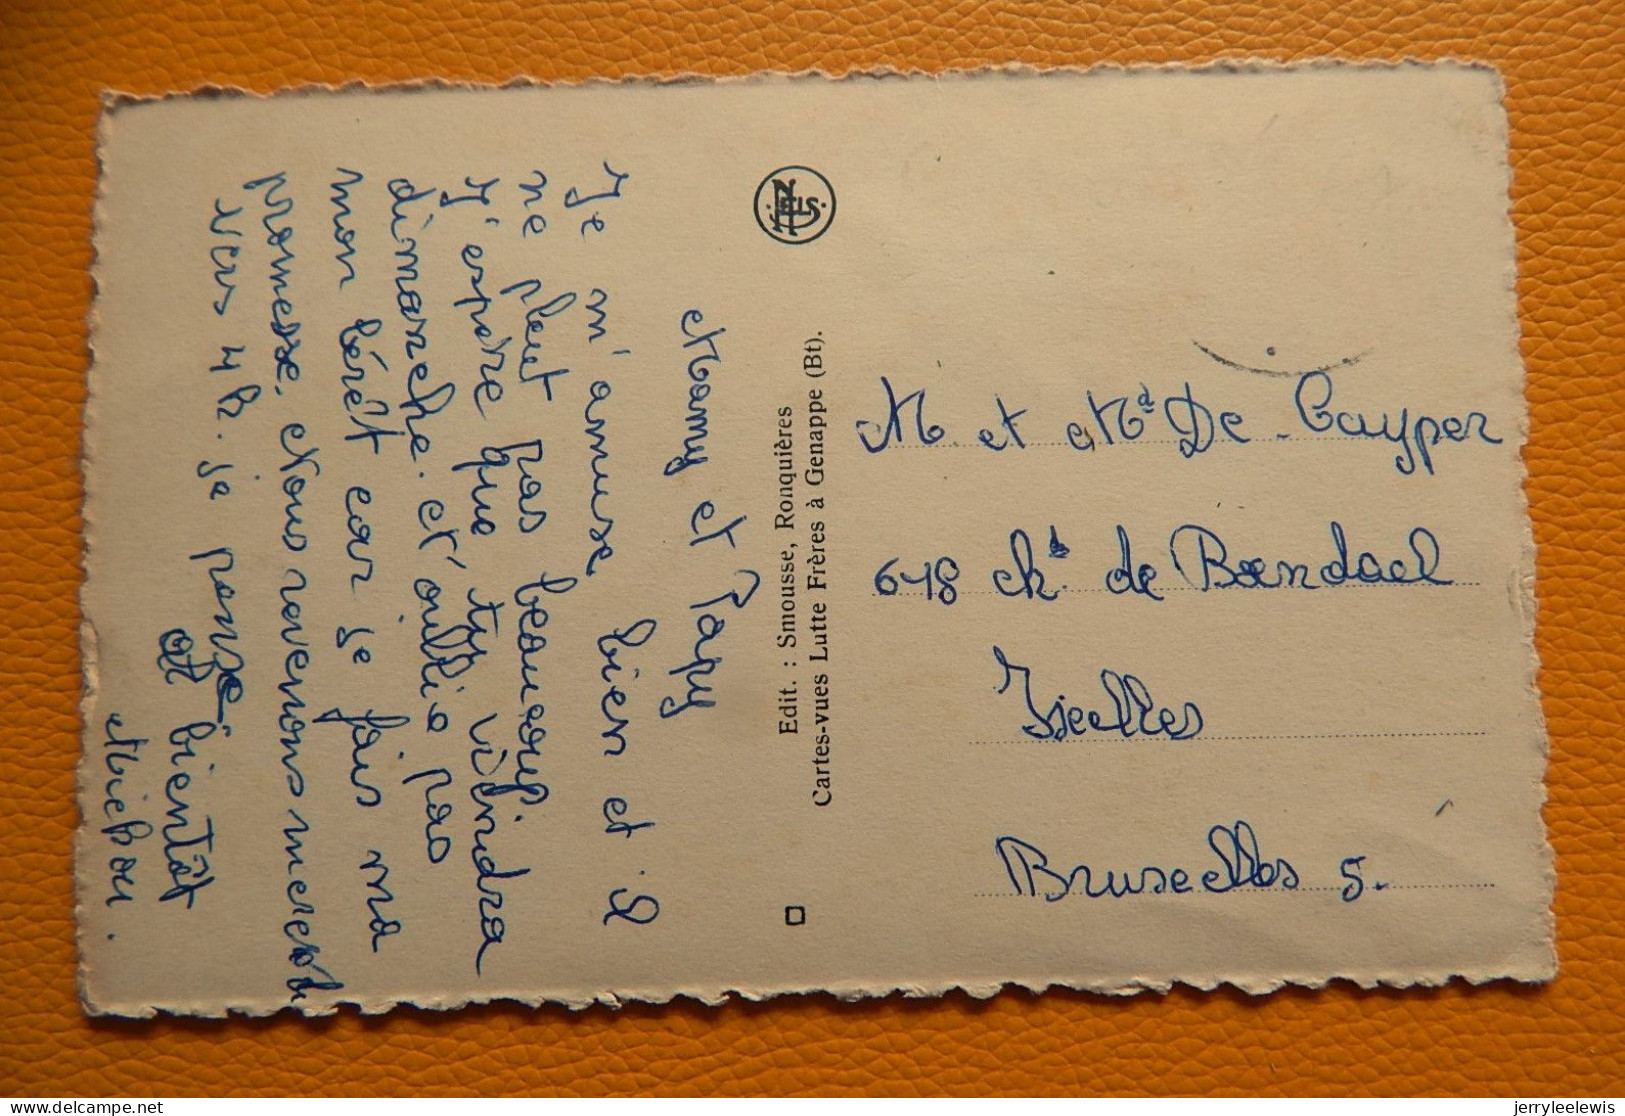 Mamy et Papy
Je m'amuse bien et il
ne pleut pas beaucoup.
J'espère que tu viendra
dimanche. N'oublie pas
mon béret car je fais ma
promesse. Nous revenons mercredi
vers 4 h. je pense.
A bientôt
Michou.
NELS
Edit. : Smousse, Ronquières
Cartes-vues Lutte Frères à Genappe (Bt).
M. et Md De Cuyper
648 ch. de Boendael
Ixelles
Bruxelles 5.
delcampe.net
jerryleelewis